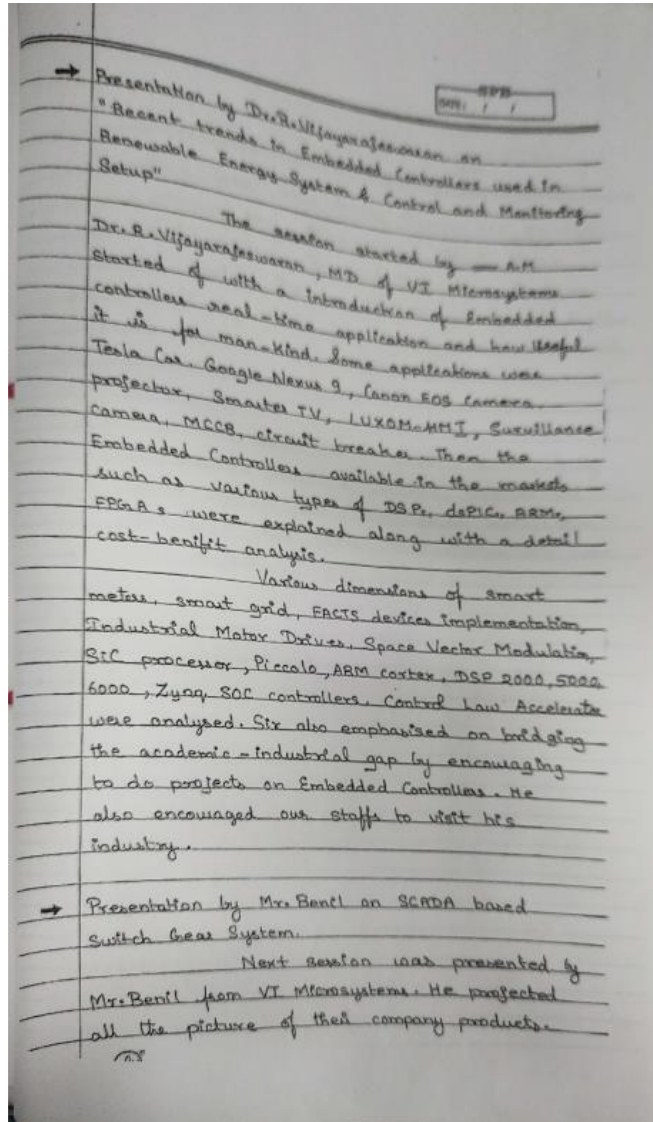 DATE: / /
→ Presentation by Dr.R.Vijayarajeswaran on
"Recent trends in Embedded Controllers used in
Renewable Energy System & Control and Monitoring
Setup"
The session started by — A.M
Dr. R. Vijayarajeswaran, MD of VI Microsystems
started of with a introduction of Embedded
controllers real-time application and how useful
it is for man-kind. Some applications were
Tesla Car, Google Nexus 9, Canon EOS Camera,
projector, Smarter TV, LUXOM-HMI, Survillance
camera, MCCB, circuit breaker. Then the
Embedded Controllers available in the markets
such as various types of DSPs, dsPIC, ARMs,
FPGAs were explained along with a detail
cost-benifit analysis.
Various dimensions of smart
meters, smart grid, FACTS devices implementation,
Industrial Motor Drives, Space Vector Modulation,
SiC processor, Piccolo, ARM cortex, DSP 2000, 5000
6000, Zynq, SOC controllers, Control Law Accelerator
were analysed. Sir also emphasised on bridging
the academic-industrial gap by encouraging
to do projects on Embedded Controllers. He
also encouraged our staffs to visit his
industry.
→ Presentation by Mr. Benil on SCADA based
Switch Gear System.
Next session was presented by
Mr. Benil from VI Microsystems. He projected
all the picture of their company products.